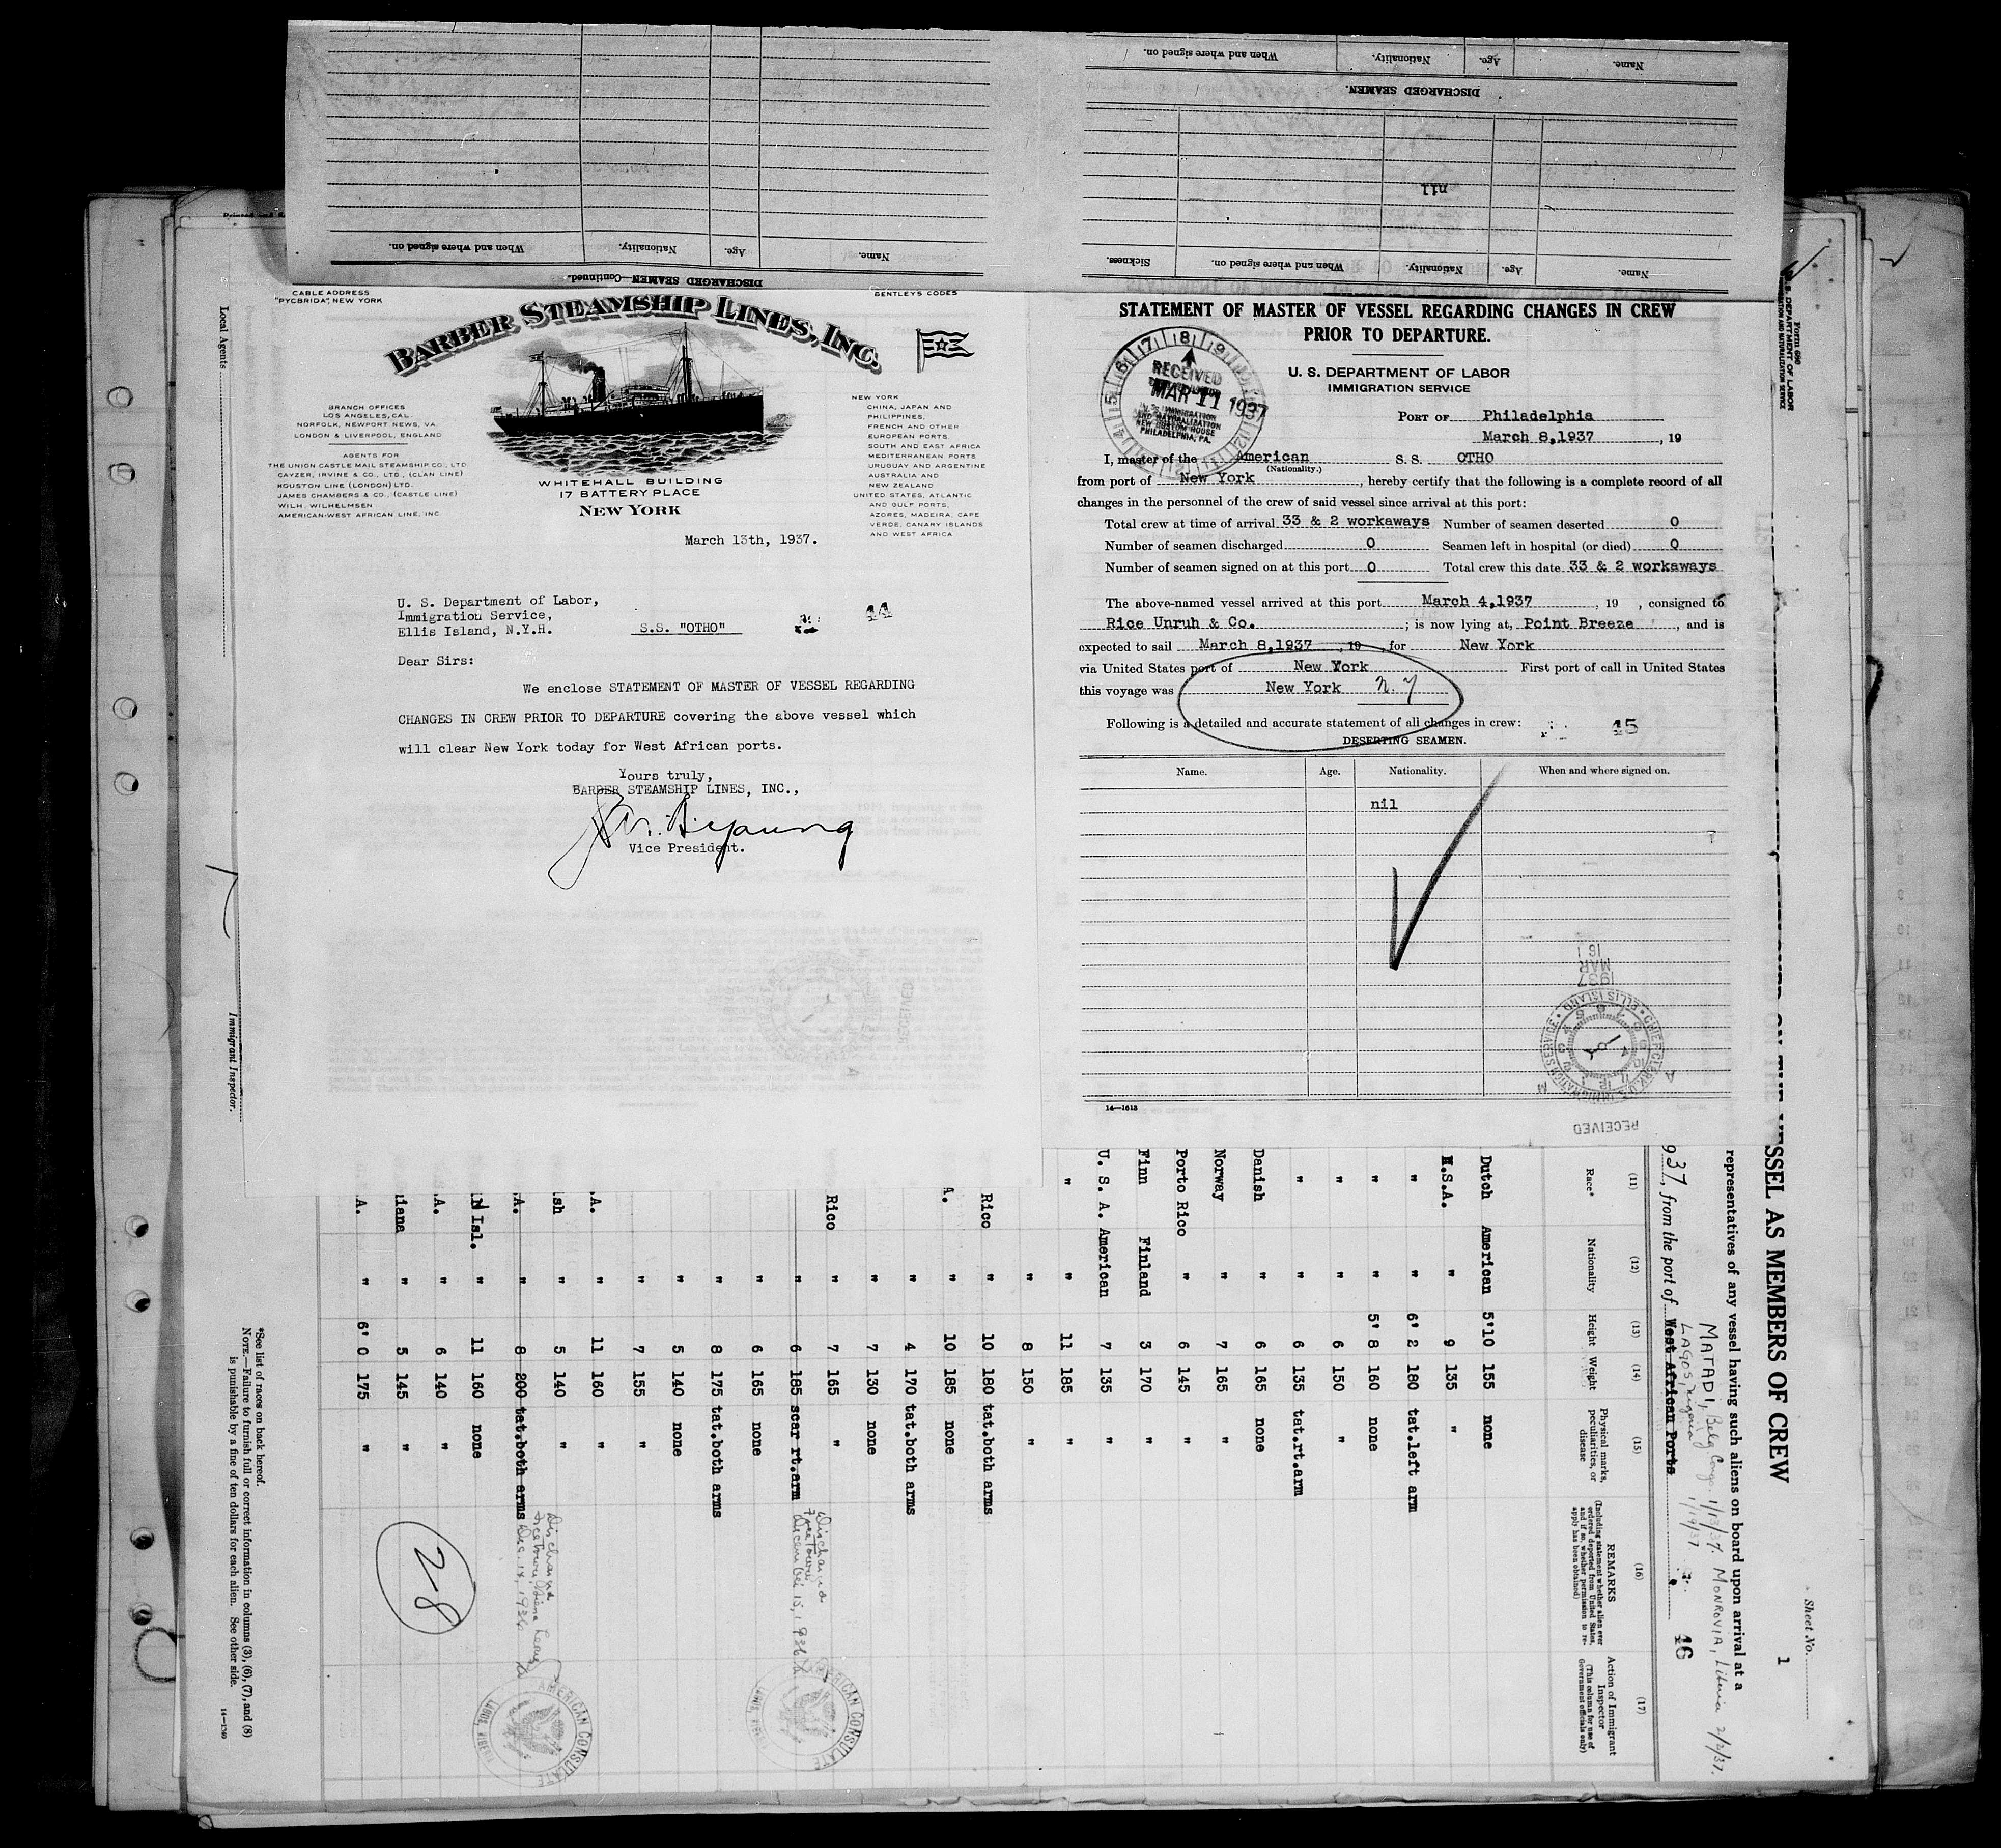 When and where signed on.
Nationality.
Age.
Name.
DISCHARGED SEAMEN.
nil
When and where signed on.
Nationality.
Age.
Name.
DISCHARGED SEAMEN—Continued.
Sickness.
When and where signed on.
Nationality.
Age.
Name.
Local Agents
Immigrant Inspector.
CABLE ADDRESS
"PYCBRIDA", NEW YORK
BENTLEY'S CODES
BARBER STEAMSHIP LINES, INC.
BRANCH OFFICES
LOS ANGELES, CAL.
NORFOLK, NEWPORT NEWS, VA.
LONDON & LIVERPOOL, ENGLAND
AGENTS FOR
THE UNION CASTLE MAIL STEAMSHIP CO., LTD.
CAYZER, IRVINE & CO., LTD., (CLAN LINE)
HOUSTON LINE (LONDON) LTD.
JAMES CHAMBERS & CO., (CASTLE LINE)
WILH. WILHELMSEN
AMERICAN-WEST AFRICAN LINE, INC.
WHITEHALL BUILDING
17 BATTERY PLACE
NEW YORK
NEW YORK
CHINA, JAPAN AND
PHILIPPINES,
FRENCH AND OTHER
EUROPEAN PORTS.
SOUTH AND EAST AFRICA
MEDITERRANEAN PORTS
URUGUAY AND ARGENTINE
AUSTRALIA AND
NEW ZEALAND
UNITED STATES, ATLANTIC
AND GULF PORTS,
AZORES, MADEIRA, CAPE
VERDE, CANARY ISLANDS
AND WEST AFRICA
March 13th, 1937.
U. S. Department of Labor,
Immigration Service,
Ellis Island, N.Y.H.
S.S. "OTHO"
44
Dear Sirs:
We enclose STATEMENT OF MASTER OF VESSEL REGARDING
CHANGES IN CREW PRIOR TO DEPARTURE covering the above vessel which
will clear New York today for West African ports.
Yours truly,
BARBER STEAMSHIP LINES, INC.,
Vice President.
Form 689
U.S. DEPARTMENT OF LABOR
STATEMENT OF MASTER OF VESSEL REGARDING CHANGES IN CREW
PRIOR TO DEPARTURE.
U. S. DEPARTMENT OF LABOR
IMMIGRATION SERVICE
RECEIVED
MAR 11 1937
U.S. IMMIGRATION
AND NATURALIZATION
NEW CUSTOM HOUSE
PHILADELPHIA, PA.
PORT OF Philadelphia
March 8,1937 , 19
I, master of the American S. S. OTHO
(Nationality.)
from port of New York , hereby certify that the following is a complete record of all
changes in the personnel of the crew of said vessel since arrival at this port:
Total crew at time of arrival 33 & 2 workaways Number of seamen deserted 0
Number of seamen discharged 0 Seamen left in hospital (or died) 0
Number of seamen signed on at this port 0 Total crew this date 33 & 2 workaways
The above-named vessel arrived at this port March 4,1937 , 19 , consigned to
Rice Unruh & Co. ; is now lying at, Point Breeze , and is
expected to sail March 8,1937 , 19 , for New York
via United States port of New York First port of call in United States
this voyage was New York N. Y
Following is a detailed and accurate statement of all changes in crew: 45
DESERTING SEAMEN.
Name. Age. Nationality. When and where signed on.
nil
1937
MAR
16
CHIEF CLERK U.S. IMMIGRATION SERVICE ELLIS ISLAND
A
M
RECEIVED
14—1613
Sheet No.
1
SSEL AS MEMBERS OF CREW
representatives of any vessel having such aliens on board upon arrival at a
MATADI, Belg Congo. 1/13/37. MONROVIA, Liberia 2/2/37.
LAGOS, Nigeria 1/19/37
937, from the port of West African Ports 46
(11) (12) (13) (14) (15) (16) (17)
Race* Nationality Height Weight Physical marks, peculiarities, or disease REMARKS (Including statement whether alien ever ordered deported from United States, and if so, whether permission to reapply has been obtained) Action of Immigrant Inspector (This column for use of Government officials only)
Dutch American 5'10 155 none
U.S.A. " 9 135 "
" " 6' 2 180 tat.left arm
" " 5' 8 160 none
" " 6 150 "
" " 6 135 tat.rt.arm
Danish " 6 165 none
Norway " 7 165 "
Porto Rico " 6 145 "
Finn Finland 3 170 "
U. S. A. American 7 135 "
" " 11 185 "
" 8 150 "
Rico " 10 180 tat.both arms
A. " 10 185 none
" 4 170 tat.both arms
" 7 130 none
Rico " 7 165 "
" 6 185 scar rt.arm Discharged Freetown December 15, 1936
" 6 165 none
" 8 175 tat.both arms
" 5 140 none
" 7 155 "
.A. " 11 160 "
sh " 5 140 "
.A. " 8 200 tat.both arms Discharged Freetown, Sierra Leone Dec. 15, 1936
n Isl. " 11 160 none
.A. " 6 140 "
iana " 5 145 "
A. " 6' 0 175 "
28
AMERICAN CONSULATE
LAGOS, NIGERIA
AMERICAN CONSULATE
LAGOS, NIGERIA
*See list of races on back hereof.
NOTE.—Failure to furnish full or correct information in columns (3), (6), (7), and (8)
is punishable by a fine of ten dollars for each alien. See other side.
14—1240